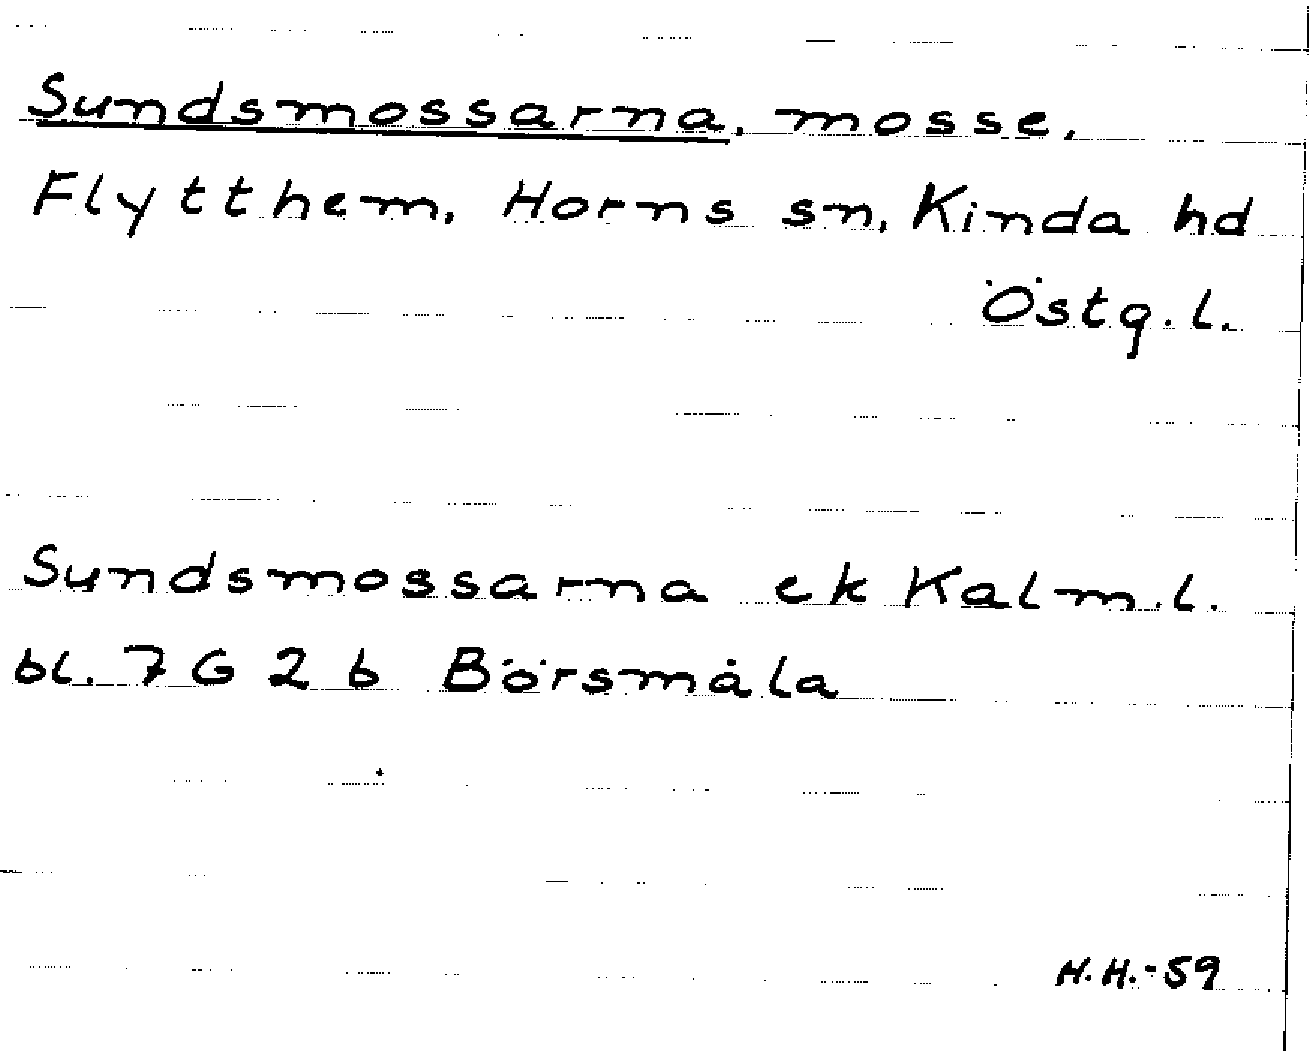 Sundsmossarna, mosse,
Flytthem, Horns sn, Kinda hd
Östg.l.
Sundsmossarna ek Kalm.l.
bl. 7 G 2 b Börsmåla
H.H.-59